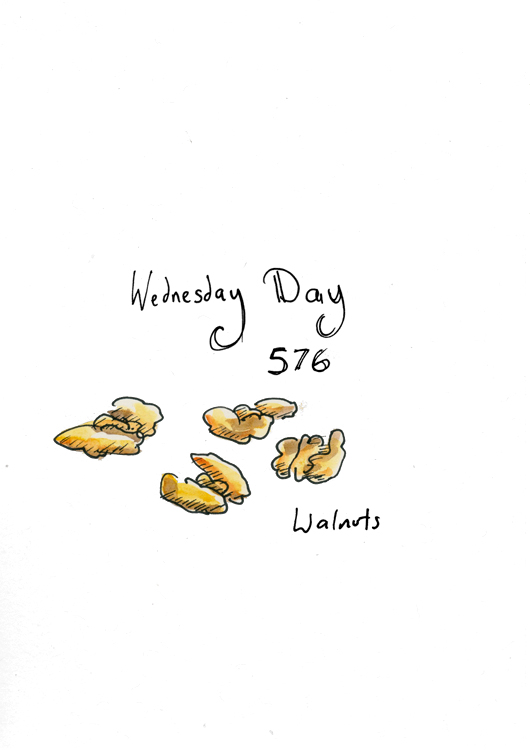 Wednesday Day
576
Walnuts